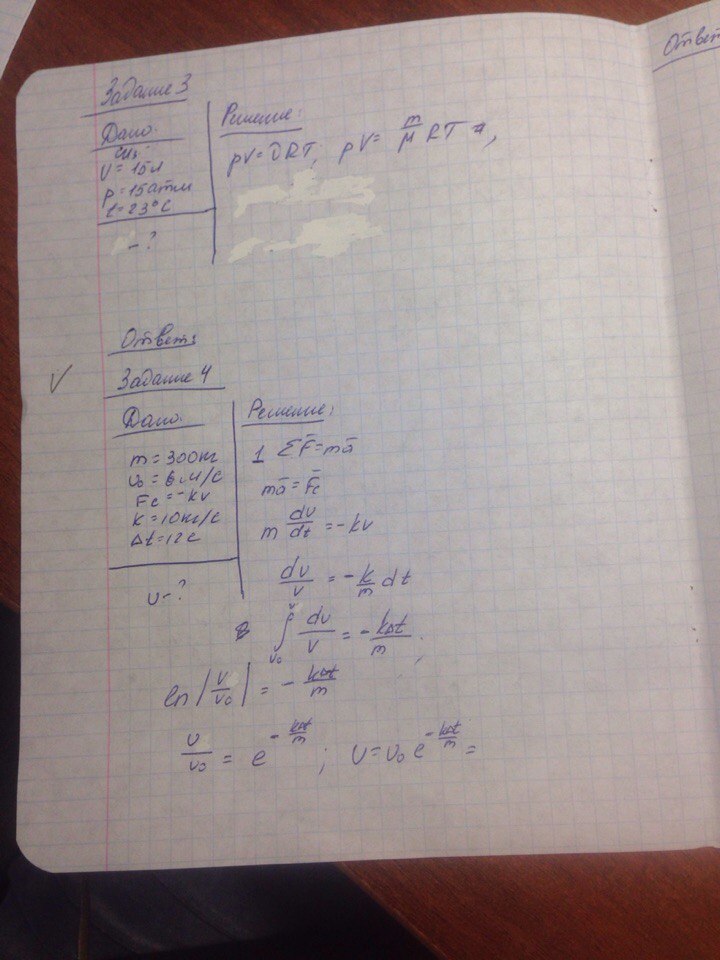 Задание 3
Дано:
CH₄
V = 15л
p = 15атм
t = 23°C
- ?
Решение:
pV = νRT; pV = m/μ RT ,
Ответ:
Ответ
V
Задание 4
Дано:
m = 300кг
v₀ = 6м/с
Fc = -kv
k = 10кг/с
Δt = 12с
v - ?
Решение:
1 ΣF̄ = mā
mā = F̄c
m dv/dt = -kv
dv/v = - k/m dt
∫ᵥ₀ᵛ dv/v = - kΔt/m ;
ln |v/v₀| = - kΔt/m
v/v₀ = e^(-kΔt/m) ; v = v₀ e^(-kΔt/m) =